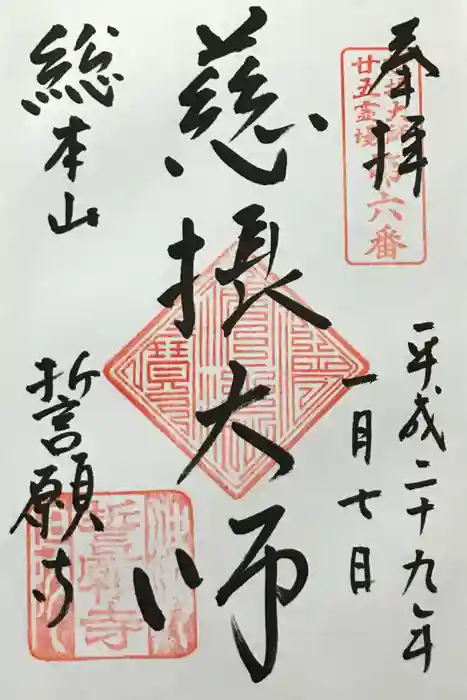 奉拝
平成二十九年
一月七日
慈振大師
総本山
誓願寺
廿五霊場
第六番
誓願寺